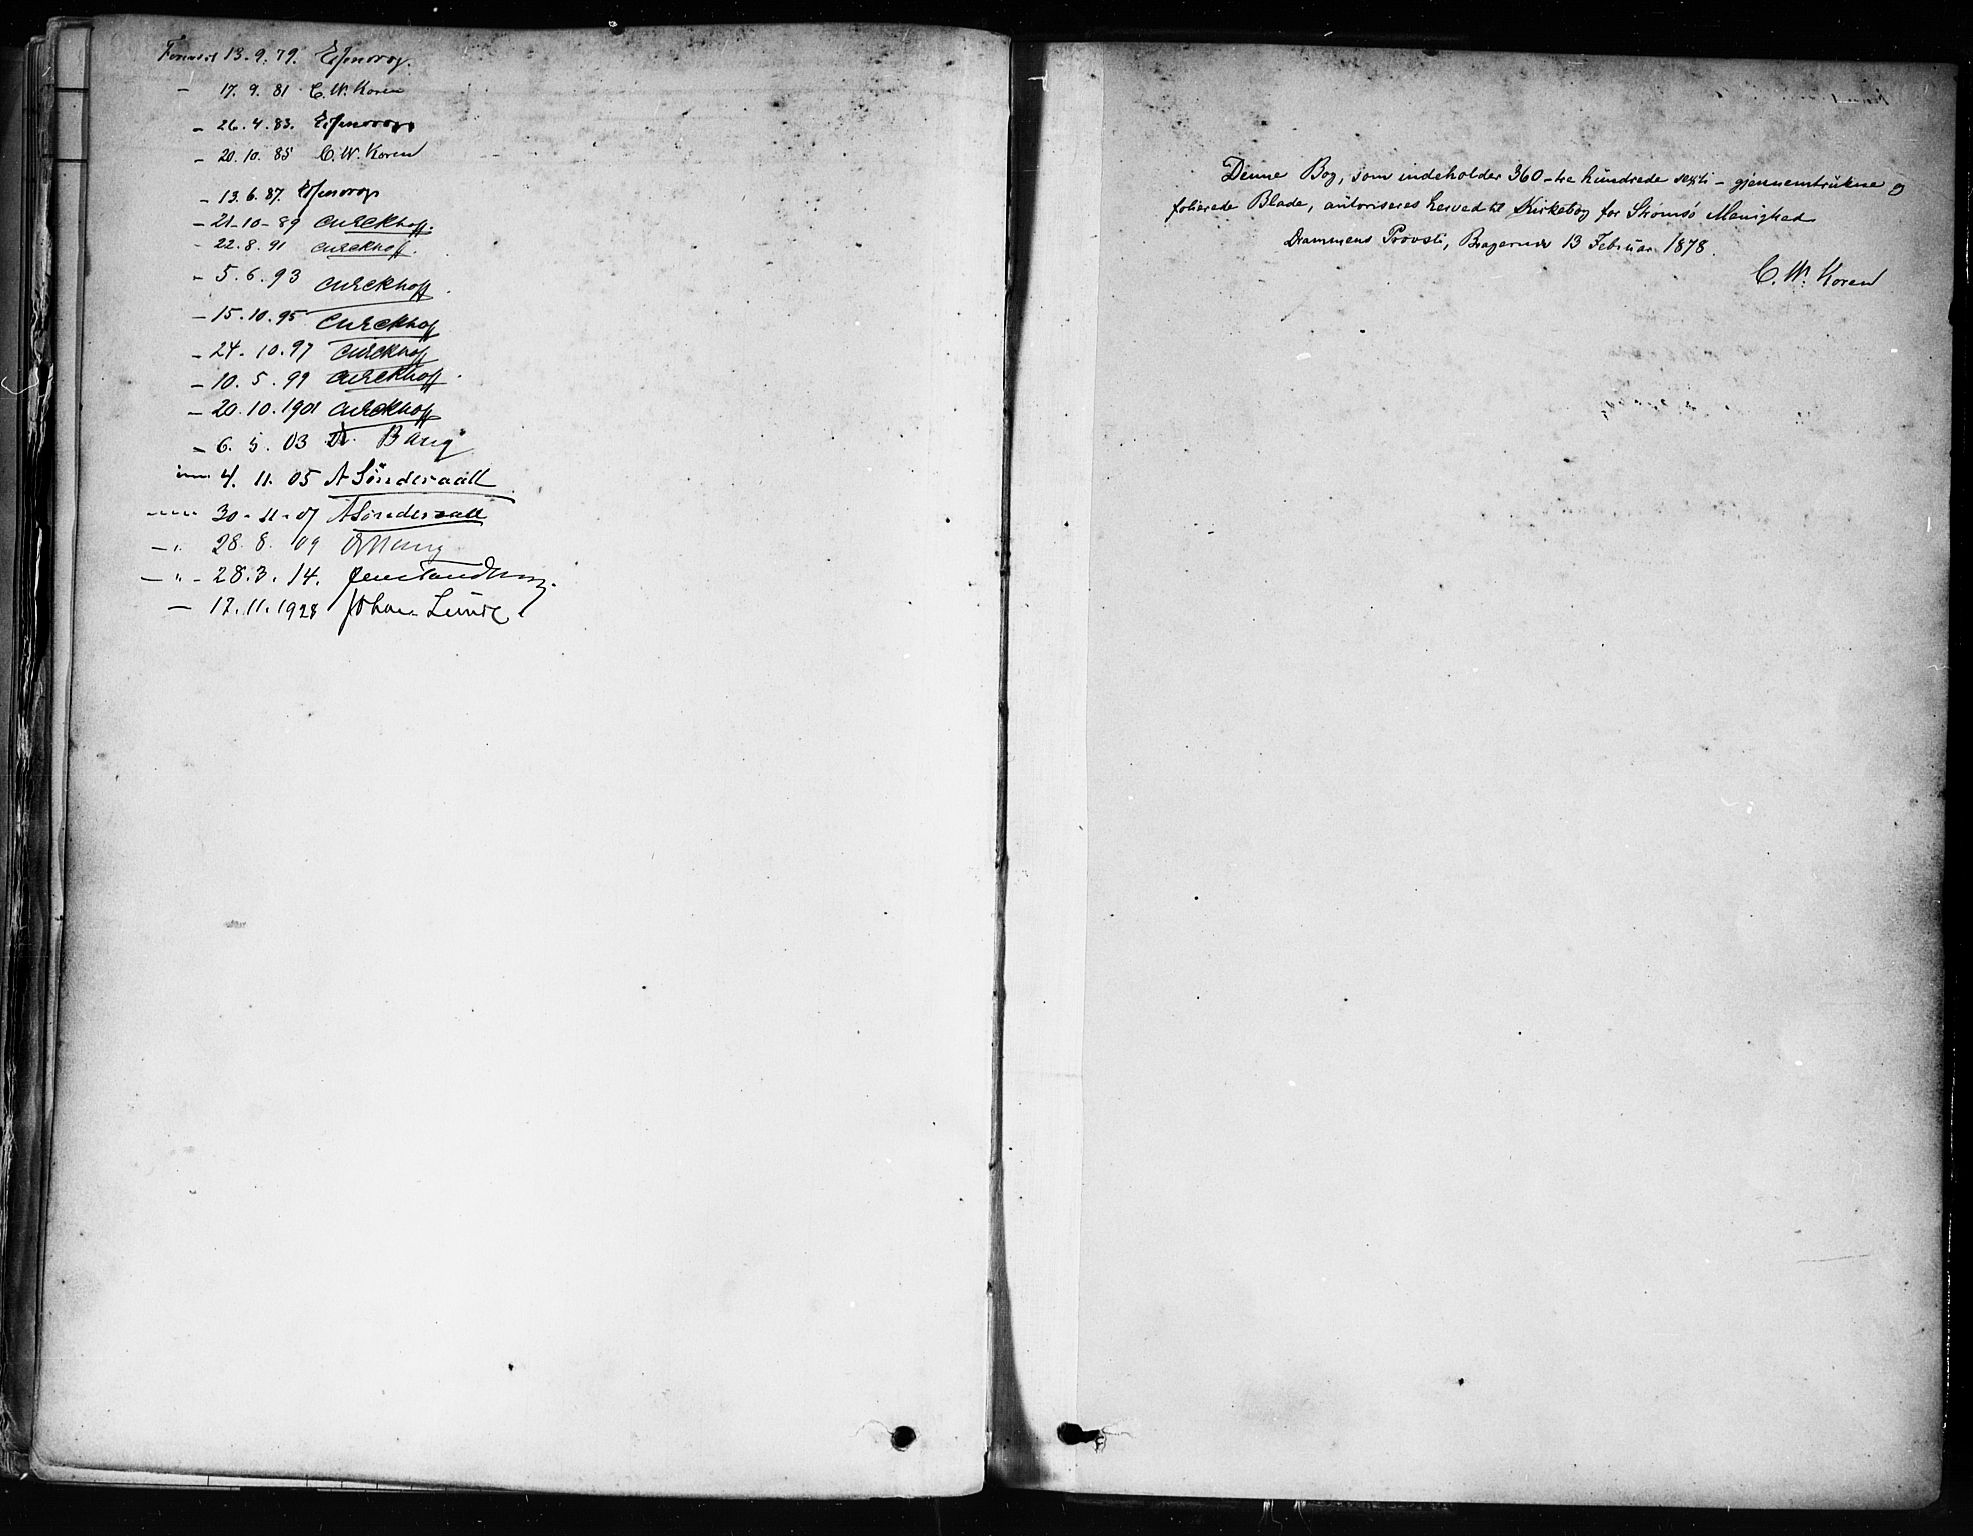 Forevist 13.9.79. Essendrop.
– 17.9.81. C. W. Koren
– 26.4.83. Essendrop
– 20.10.85 C. W. Koren
– 13.6.87. Essendrop
– 21-10-89
– 22.8.91
– 5.6.93
– 15.10.95
– 24-10.97
– 10.5.99
– 20.10.1901
– 6.5.03 Bang
4.11.05 A Sönderaall
30-11-07 A Sønderaall
28.8.09
– " – 28.3.14. Jens Tandberg.
– 17.11.1928 Johan Lunde
Denne Bog, som indeholder 360 – tre hundrede sexti – gjennemtrukne og
folierede Blade, autoriseres herved til Kirkebog for Strømsø Menighed
Drammens Provsti, Bragernes 13 Februar 1878.
C. W. Koren